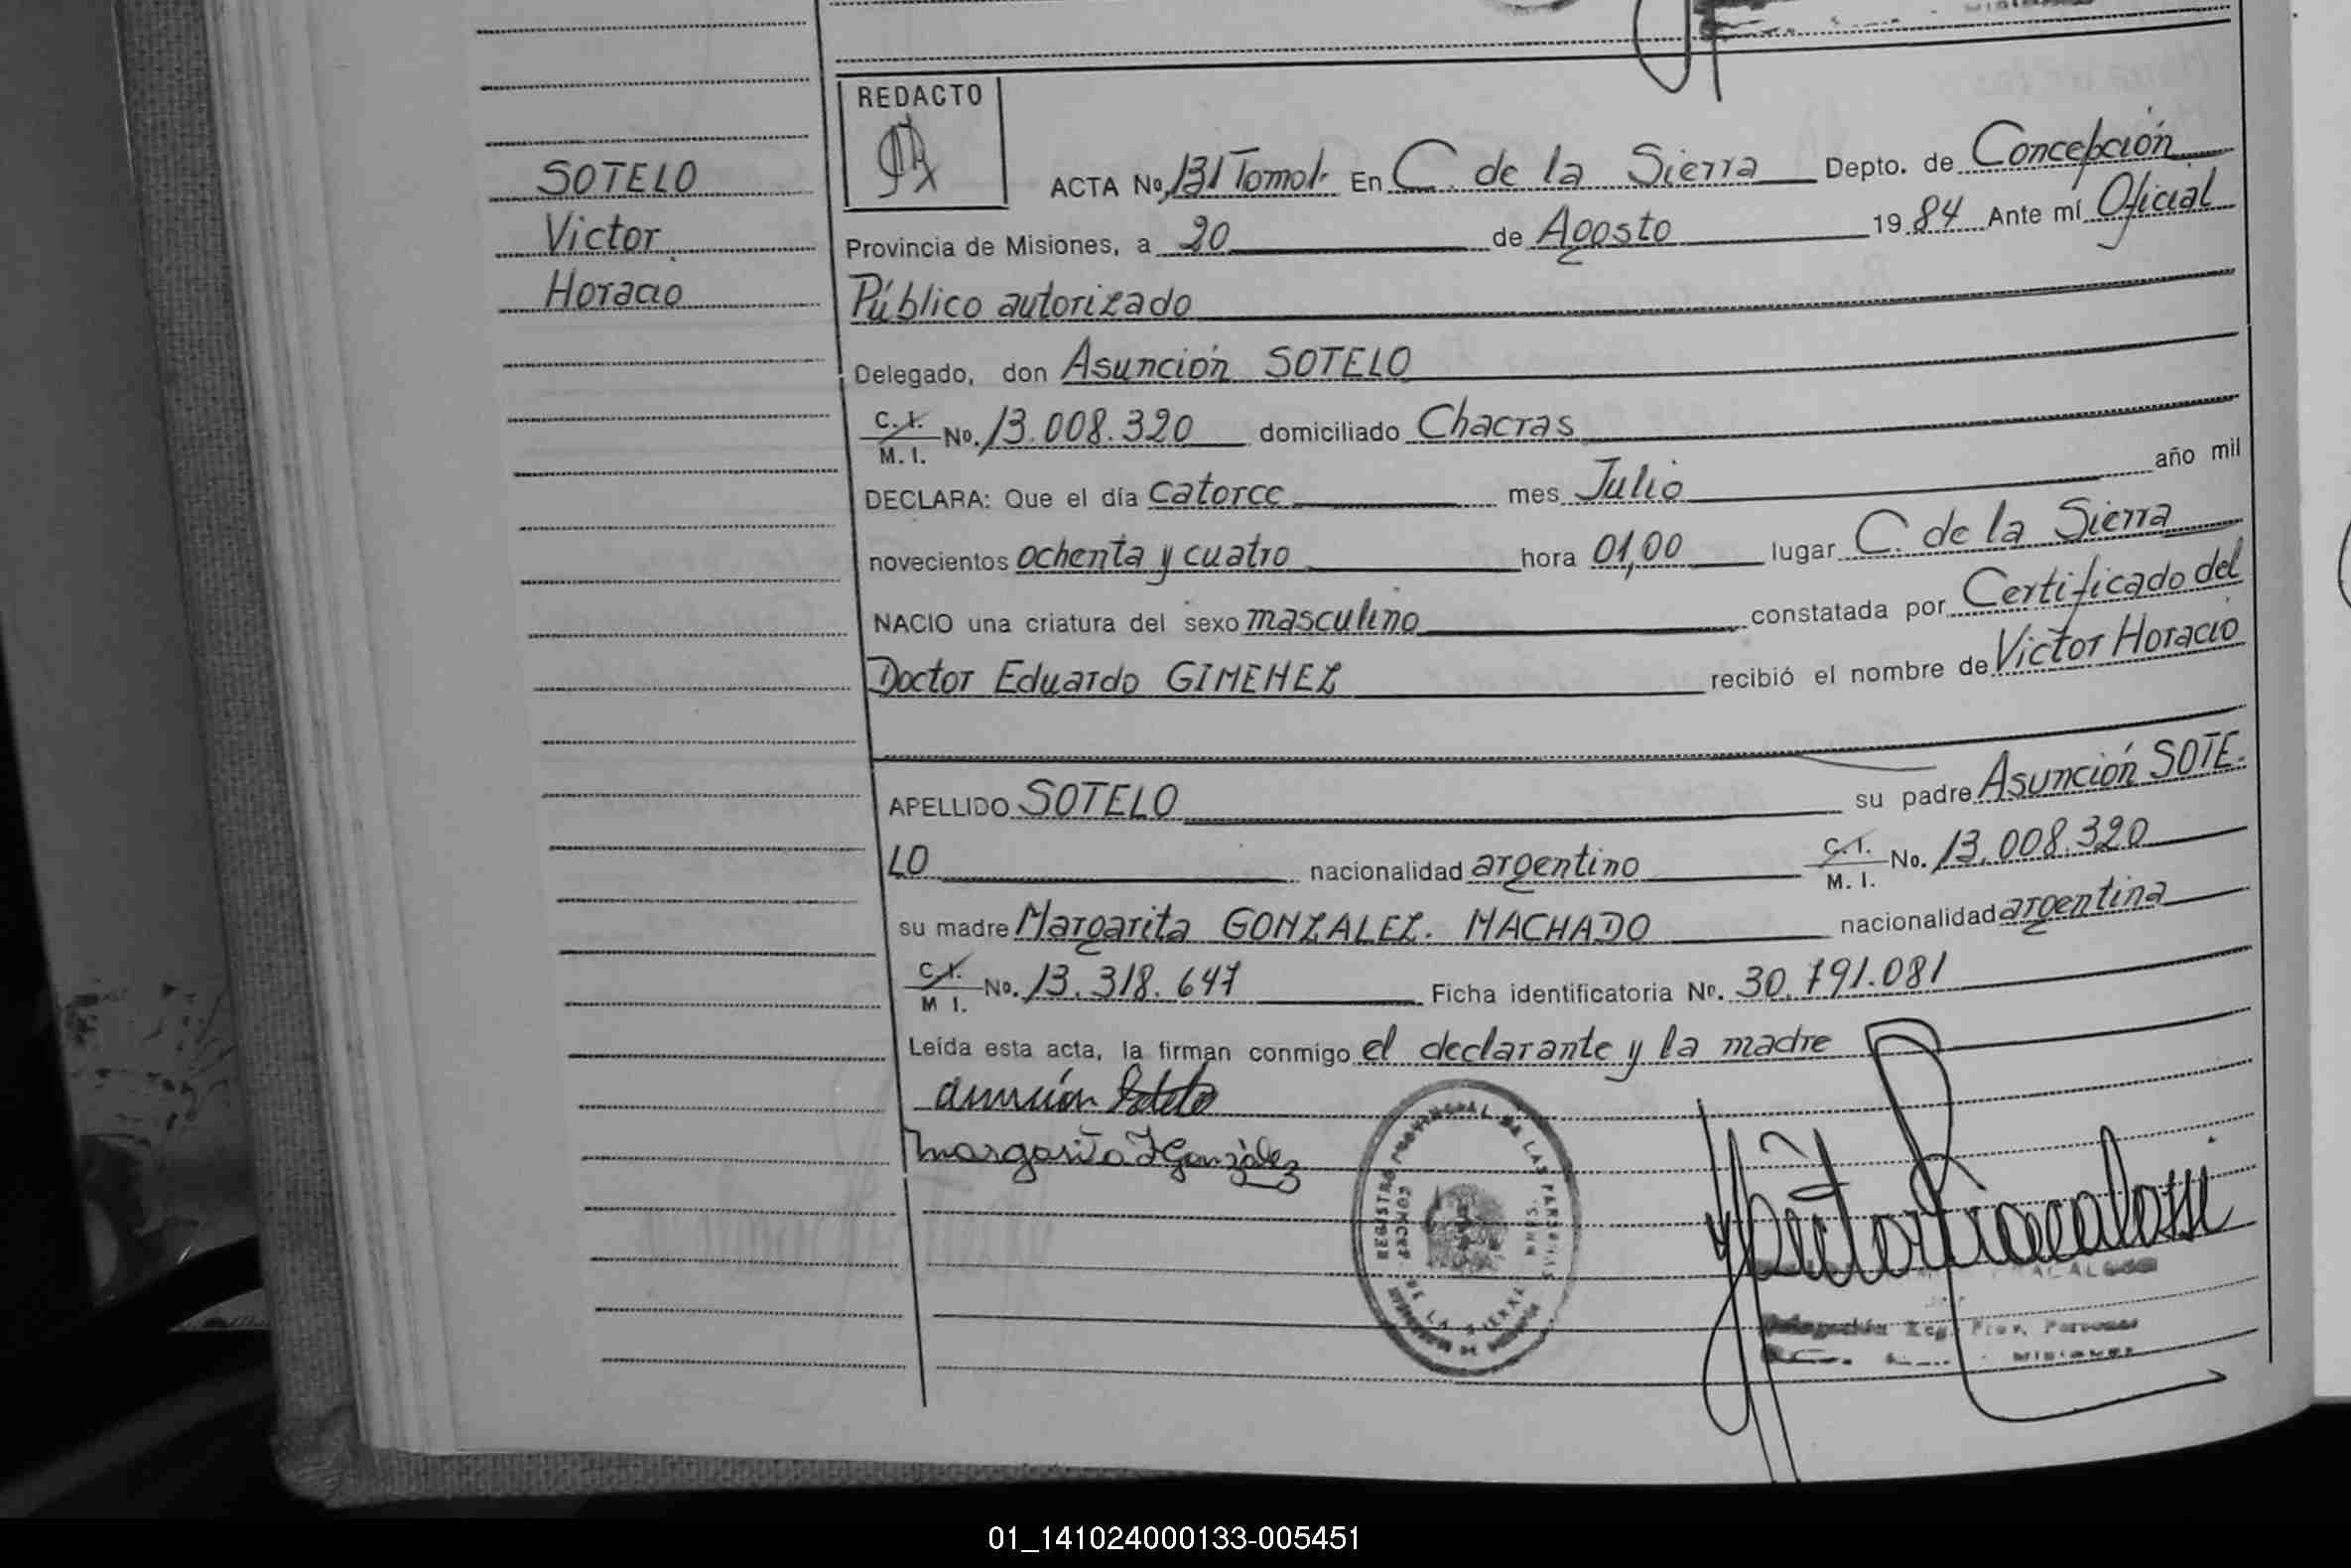 REDACTO
SOTELO
Victor
Horacio
ACTA No. 131 Tomo I. En C. de la Sierra Depto. de Concepción
Provincia de Misiones, a 20 de Agosto 1984 Ante mí Oficial
Público autorizado
Delegado, don Asunción SOTELO
C. I.
M. I. No. 13.008.320 domiciliado Chacras
DECLARA: Que el día catorce mes Julio año mil
novecientos ochenta y cuatro hora 01,00 lugar C. de la Sierra
NACIO una criatura del sexo masculino constatada por Certificado del
Doctor Eduardo GIMENEZ recibió el nombre de Victor Horacio
APELLIDO SOTELO su padre Asunción SOTE-
LO nacionalidad argentino C. I. M. I. No. 13.008.320
su madre Margarita GONZALEZ. MACHADO nacionalidad argentina
C. I.
M I. No. 13.318.647 Ficha identificatoria Nº. 30.791.081
Leída esta acta, la firman conmigo el declarante y la madre
Asunción Sotelo
Margarita González
REGISTRO PROVINCIAL DE LAS PERSONAS
DE LA SIERRA
Reg. Prov. Personas
01_141024000133-005451